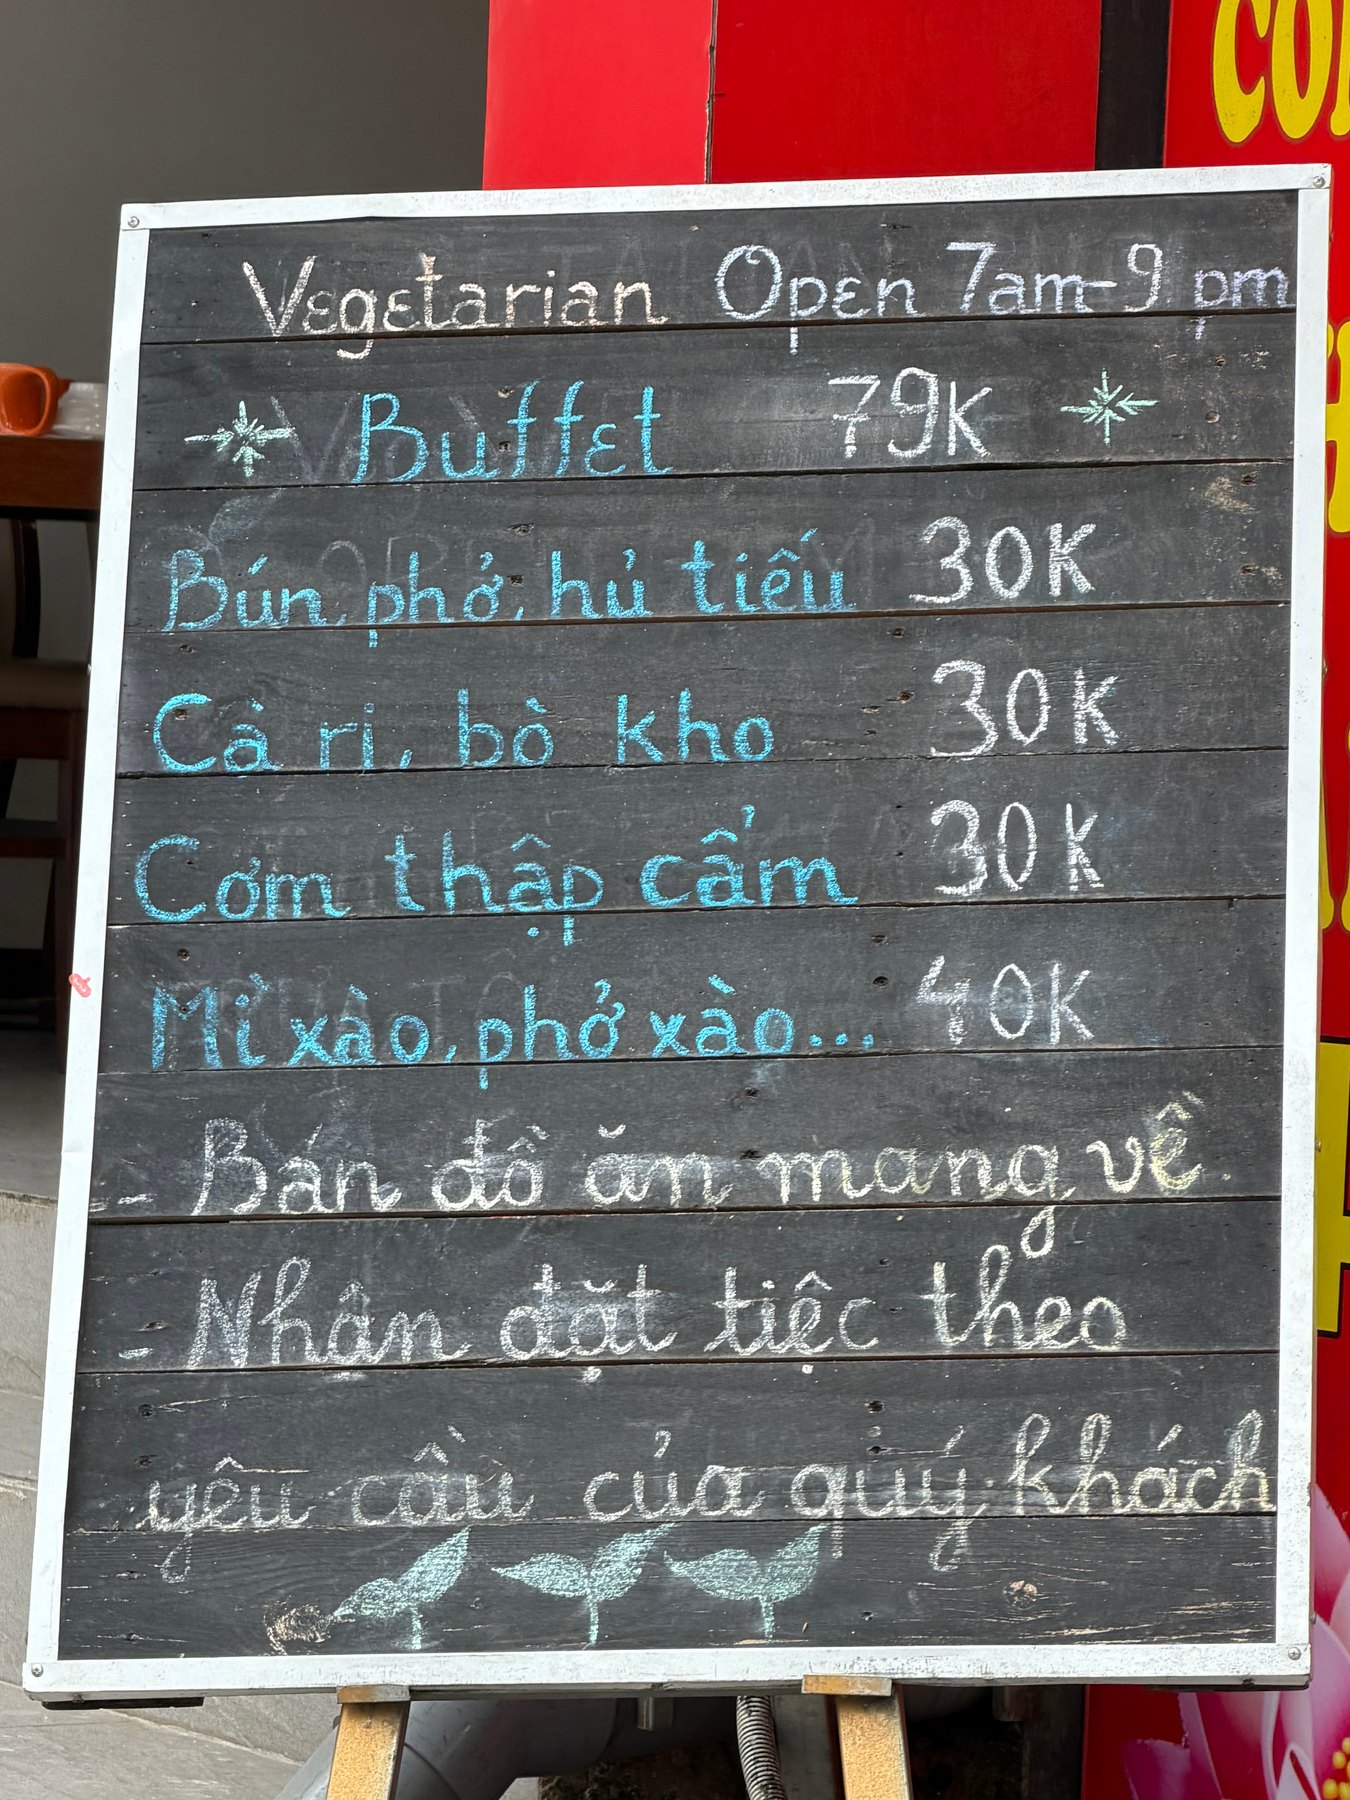 Vegetarian Open 7am-9 pm
Buffet 79K
Bún, phở, hủ tiếu 30K
Cà ri, bò kho 30K
Cơm thập cẩm 30K
Mì xào, phở xào... 40K
- Bán đồ ăn mang về.
- Nhận đặt tiệc theo
yêu cầu của quý khách